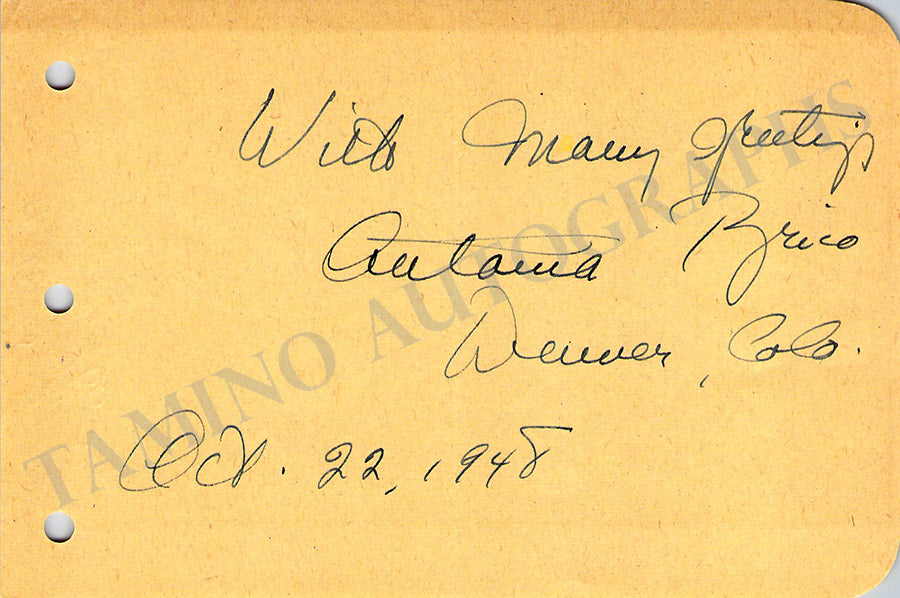 With Many Greetings
Antonia Brico
Denver, Colo.
Oct. 22, 1948
TAMINO AUTOGRAPHS